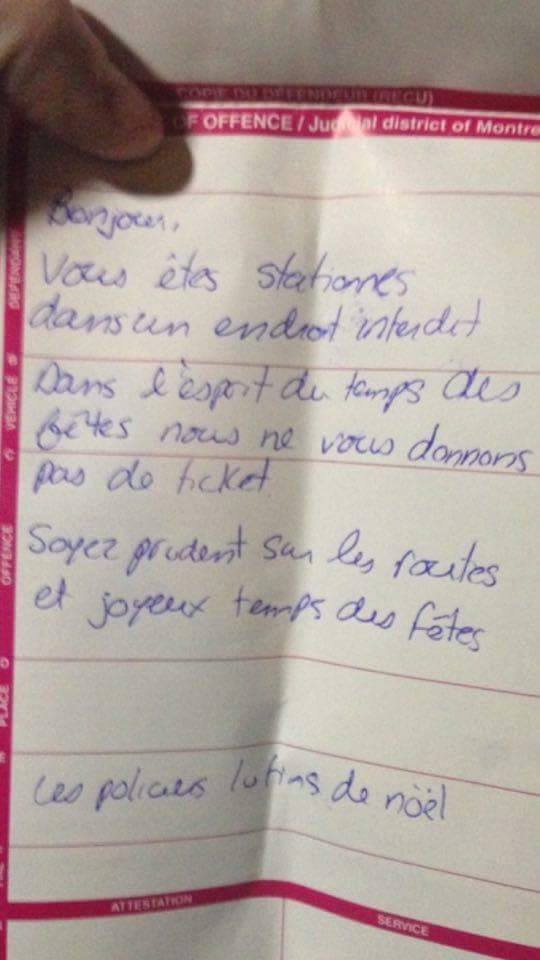 COPIE DU DÉFENDEUR (REÇU)
OF OFFENCE / Judicial district of Montre
Bonjour,
Vous êtes stationnés
dans un endroit interdit
Dans l'esprit du temps des
fêtes nous ne vous donnons
pas de ticket
Soyez prudent sur les routes
et joyeux temps des fêtes
Les policiers lutins de nöël
DEFENDANT
VEHICLE
OFFENCE
PLACE
ATTESTATION
SERVICE